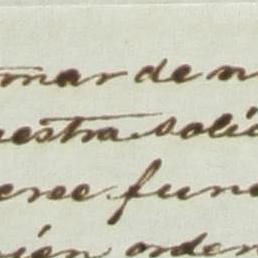 mar de n
uestra solic
eree fund
ién orden